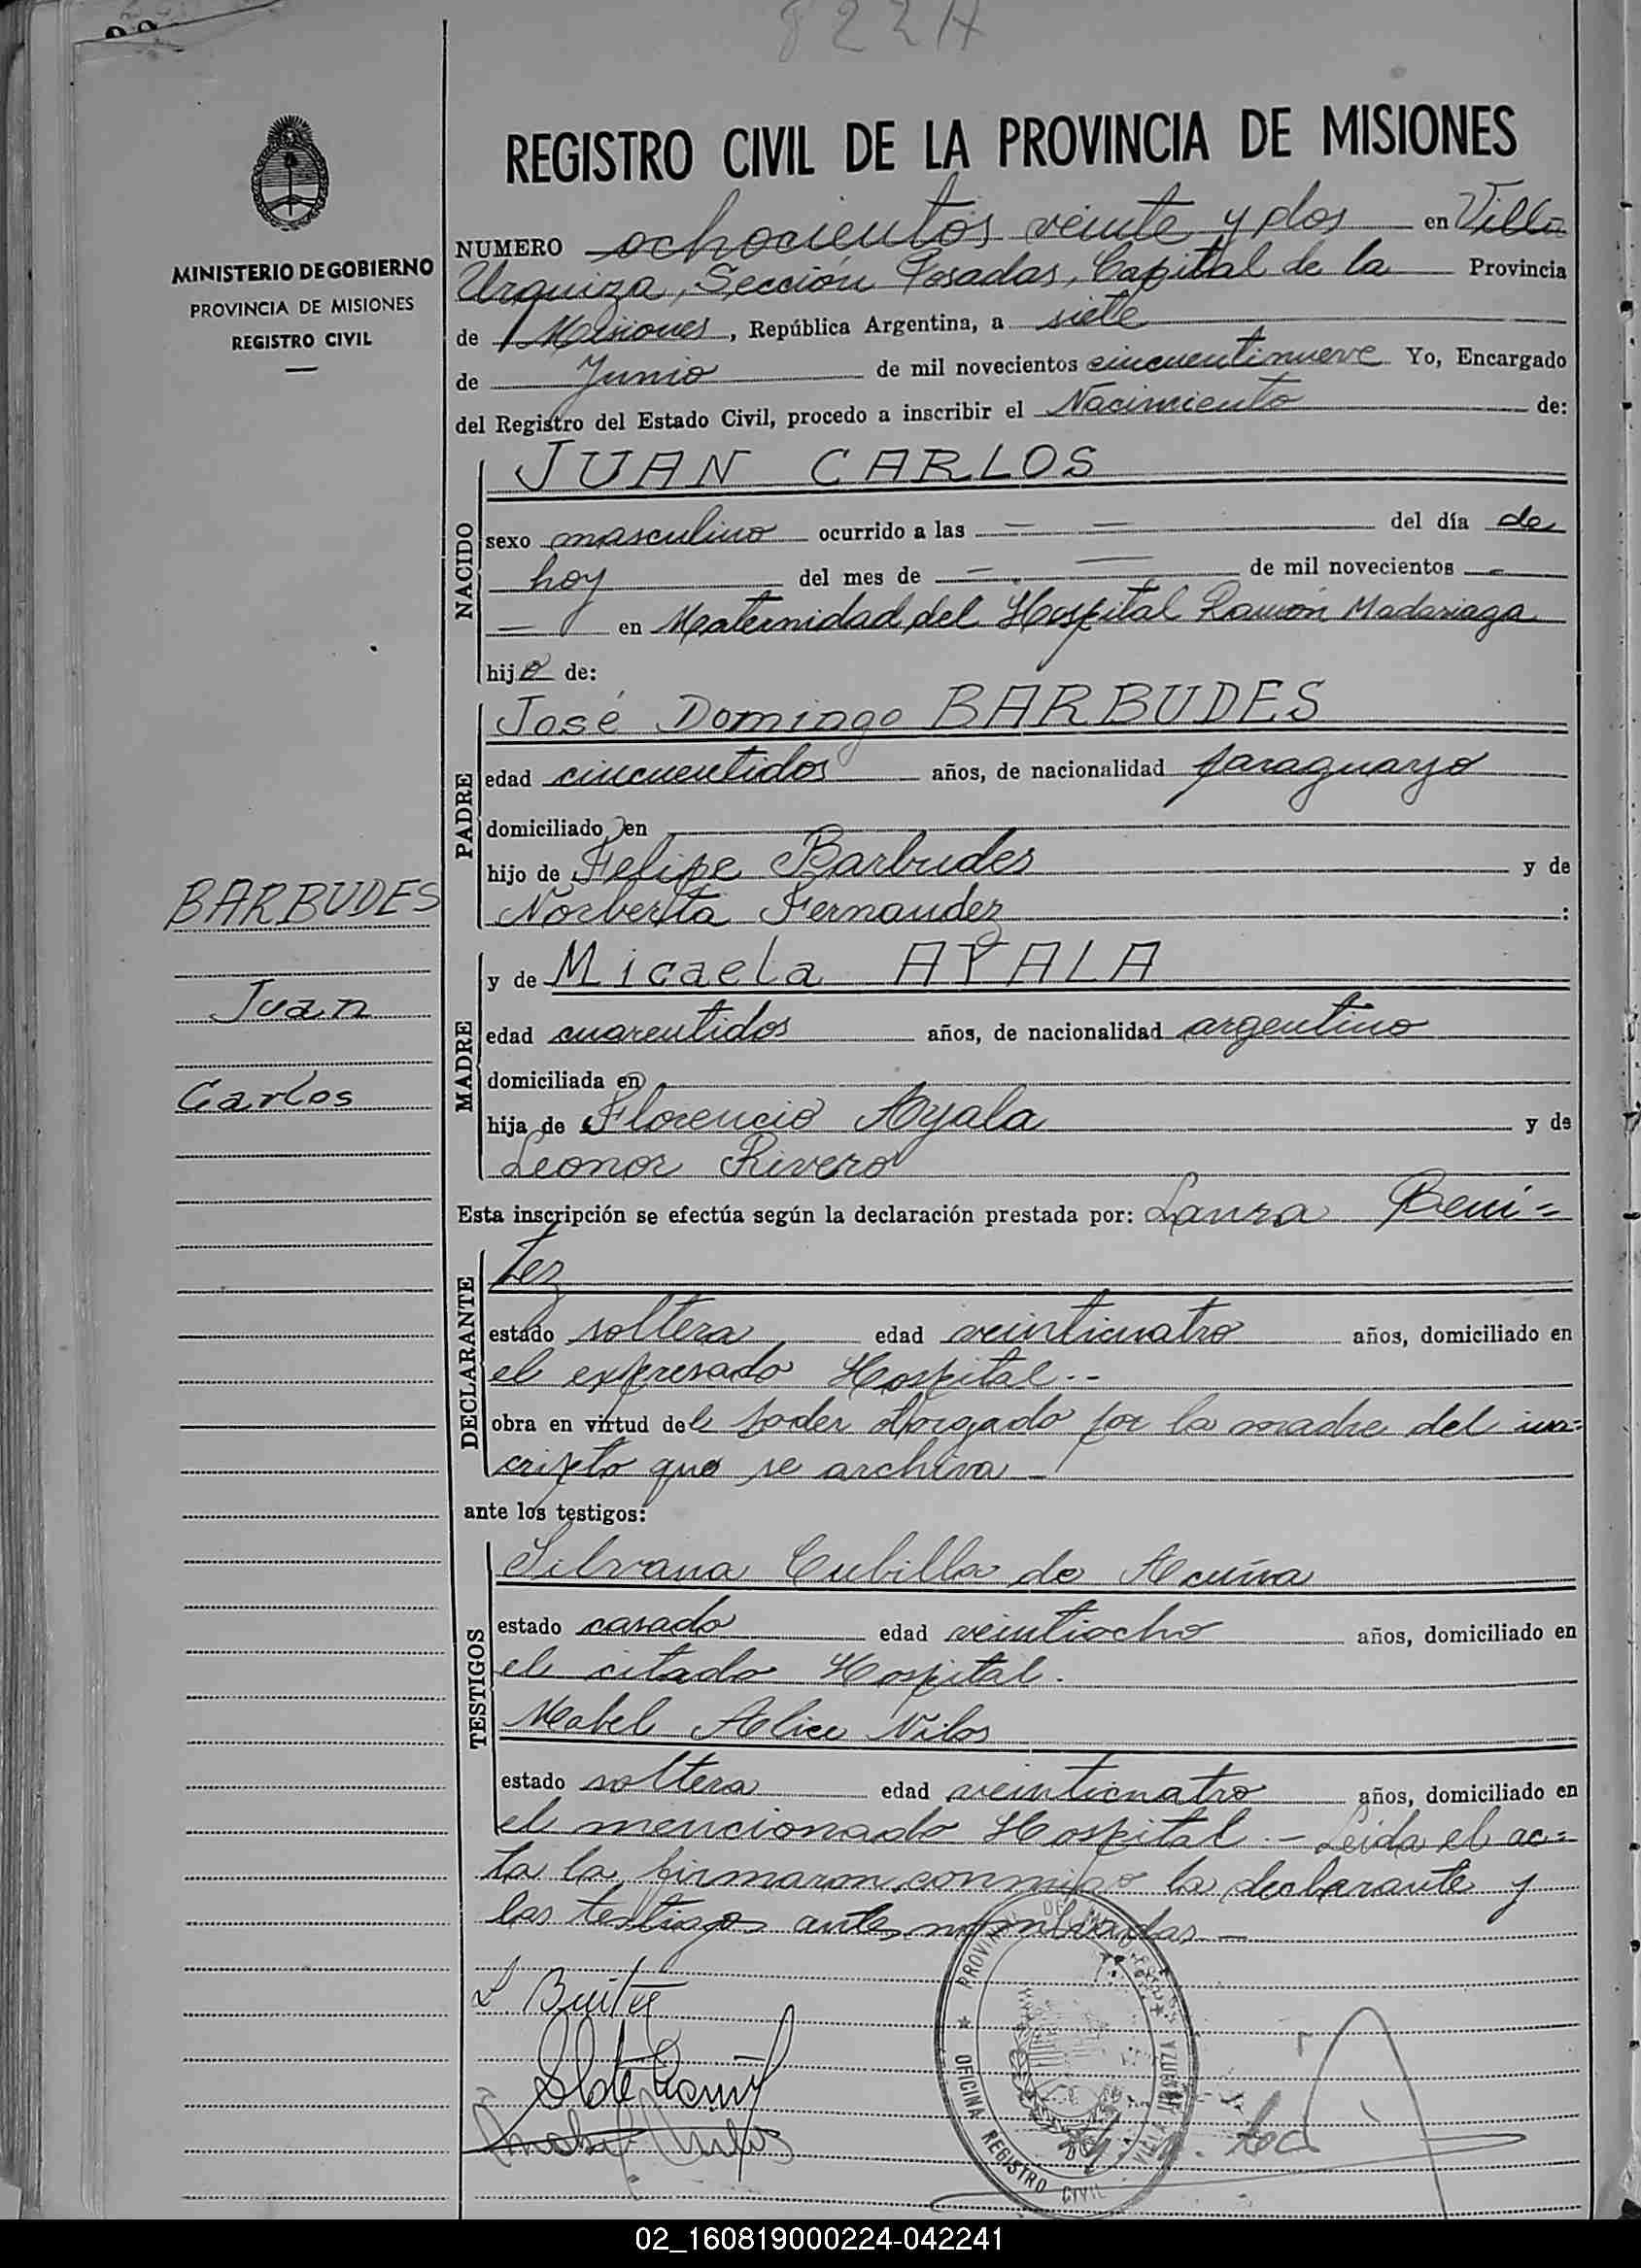 822A
MINISTERIO DE GOBIERNO
PROVINCIA DE MISIONES
REGISTRO CIVIL
BARBUDES
Juan
Carlos
REGISTRO CIVIL DE LA PROVINCIA DE MISIONES
NUMERO ochocientos veinte y dos en Villa
Urquiza, Sección Posadas, Capital de la Provincia
de Misiones, República Argentina, a siete
de Junio de mil novecientos cincuentinueve Yo, Encargado
del Registro del Estado Civil, procedo a inscribir el Nacimiento de:
NACIDO
JUAN CARLOS
sexo masculino ocurrido a las — — del día de
hoy del mes de — — de mil novecientos —
— en Maternidad del Hospital Ramón Madariaga
hijo de:
PADRE
José Domingo BARBUDES
edad cincuentidos años, de nacionalidad paraguayo
domiciliado en
hijo de Felipe Barbudes y de
Norberta Fernandez :
MADRE
y de Micaela AYALA
edad cuarentidos años, de nacionalidad argentino
domiciliada en
hija de Florencio Ayala y de
Leonor Rivero
Esta inscripción se efectúa según la declaración prestada por: Laura Beni=
tez
DECLARANTE
estado soltera edad veinticuatro años, domiciliado en
el expresado Hospital.--
obra en virtud del poder otorgado por la madre del ins=
cripto que se archiva -
ante los testigos:
TESTIGOS
Silvana Cubilla de Acuña
estado casado edad veintiocho años, domiciliado en
el citado Hospital.
Mabel Alice Nilos
estado soltera edad veinticuatro años, domiciliado en
el mencionado Hospital.- Leida el ac=
ta la firmaron conmigo la declarante y
las testigos antes nombradas -
L. Benitez
PROVINCIA DE MISIONES
OFICINA REGISTRO CIVIL
VILLA URQUIZA
02_160819000224-042241